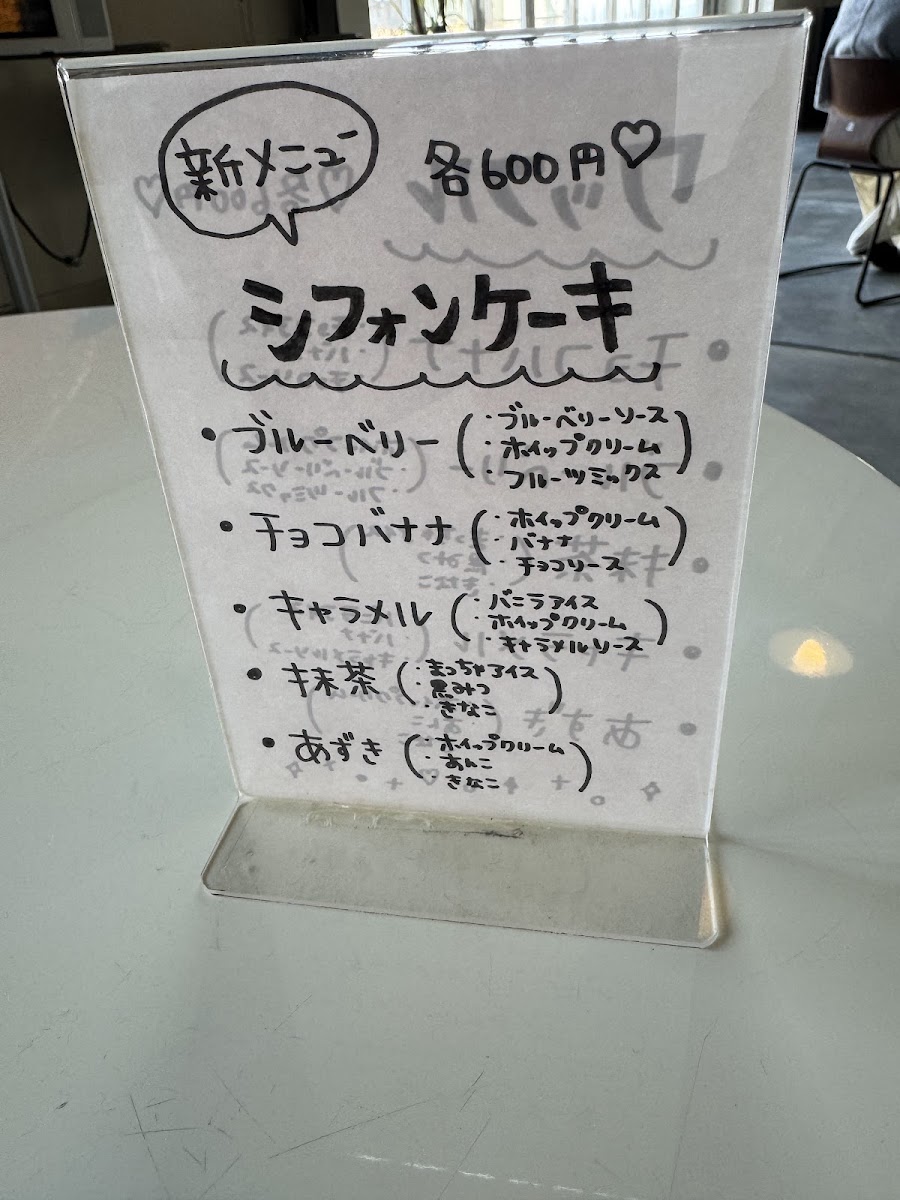 新メニュー
各600円♡
シフォンケーキ
・ブルーベリー(・ブルーベリーソース
・ホイップクリーム
・フルーツミックス)
・チョコバナナ(・ホイップクリーム
・バナナ
・チョコソース)
・キャラメル(・バニラアイス
・ホイップクリーム
・キャラメルソース)
・抹茶(・まっちゃアイス
・黒みつ
・きなこ)
・あずき(・ホイップクリーム
・あんこ
・きなこ)